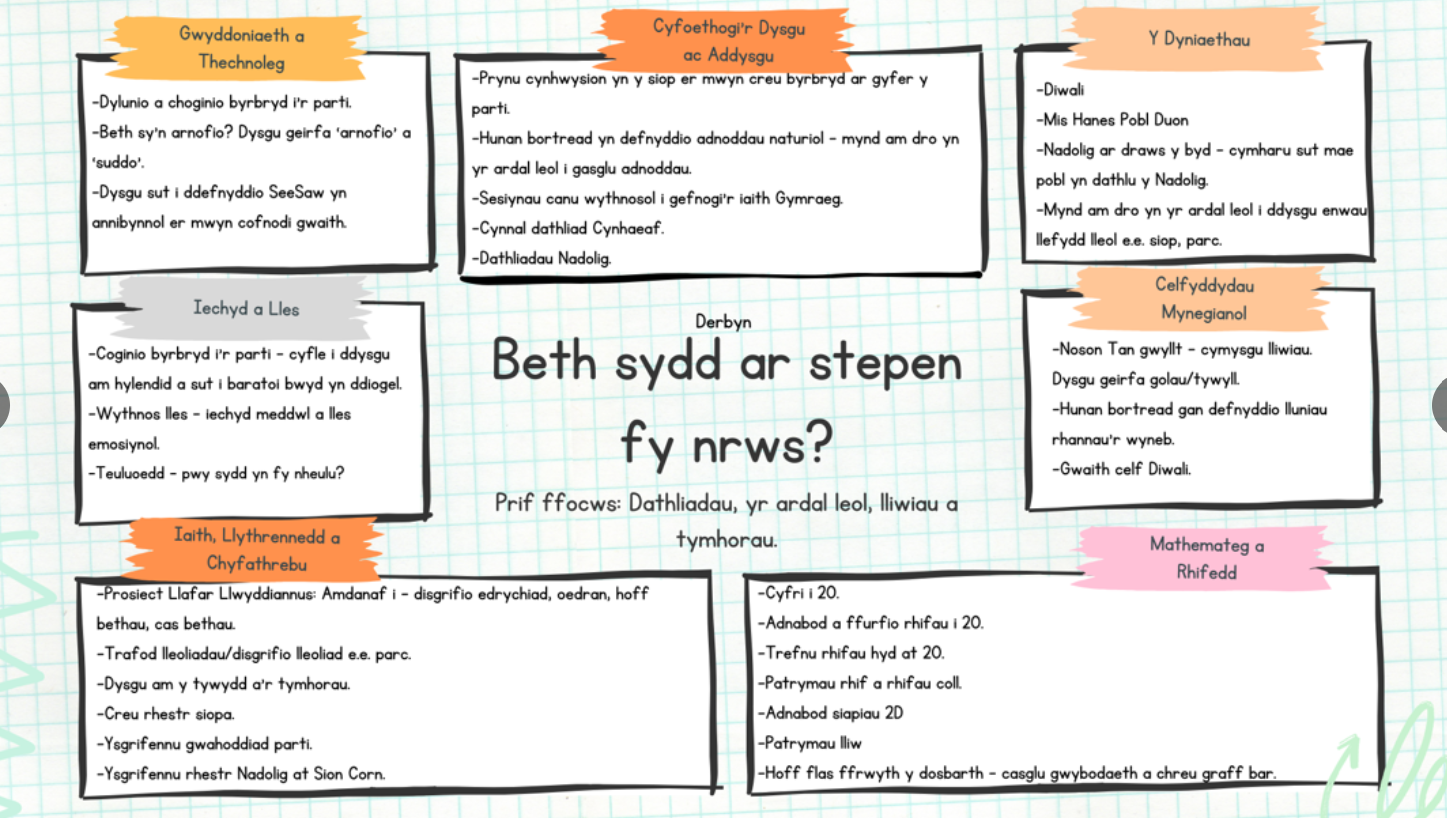 Gwyddoniaeth a
Thechnoleg
-Dylunio a choginio byrbryd i'r parti.
-Beth sy'n arnofio? Dysgu geirfa 'arnofio' a
'suddo'.
-Dysgu sut i ddefnyddio SeeSaw yn
annibynnol er mwyn cofnodi gwaith.
Cyfoethogi'r Dysgu
ac Addysgu
-Prynu cynhwysion yn y siop er mwyn creu byrbryd ar gyfer y
parti.
-Hunan bortread yn defnyddio adnoddau naturiol - mynd am dro yn
yr ardal leol i gasglu adnoddau.
-Sesiynau canu wythnosol i gefnogi'r iaith Gymraeg.
-Cynnal dathliad Cynhaeaf.
-Dathliadau Nadolig.
Y Dyniaethau
-Diwali
-Mis Hanes Pobl Duon
-Nadolig ar draws y byd - cymharu sut mae
pobl yn dathlu y Nadolig.
-Mynd am dro yn yr ardal leol i ddysgu enwau
llefydd lleol e.e. siop, parc.
Iechyd a Lles
-Coginio byrbryd i'r parti - cyfle i ddysgu
am hylendid a sut i baratoi bwyd yn ddiogel.
-Wythnos lles - iechyd meddwl a lles
emosiynol.
-Teuluoedd - pwy sydd yn fy nheulu?
Derbyn
Beth sydd ar stepen
fy nrws?
Prif ffocws: Dathliadau, yr ardal leol, lliwiau a
tymhorau.
Celfyddydau
Mynegianol
-Noson Tan gwyllt - cymysgu lliwiau.
Dysgu geirfa golau/tywyll.
-Hunan bortread gan defnyddio lluniau
rhannau'r wyneb.
-Gwaith celf Diwali.
Iaith, Llythrennedd a
Chyfathrebu
-Prosiect Llafar Llwyddiannus: Amdanaf i - disgrifio edrychiad, oedran, hoff
bethau, cas bethau.
-Trafod lleoliadau/disgrifio lleoliad e.e. parc.
-Dysgu am y tywydd a'r tymhorau.
-Creu rhestr siopa.
-Ysgrifennu gwahoddiad parti.
-Ysgrifennu rhestr Nadolig at Sion Corn.
Mathemateg a
Rhifedd
-Cyfri i 20.
-Adnabod a ffurfio rhifau i 20.
-Trefnu rhifau hyd at 20.
-Patrymau rhif a rhifau coll.
-Adnabod siapiau 2D
-Patrymau lliw
-Hoff flas ffrwyth y dosbarth - casglu gwybodaeth a chreu graff bar.